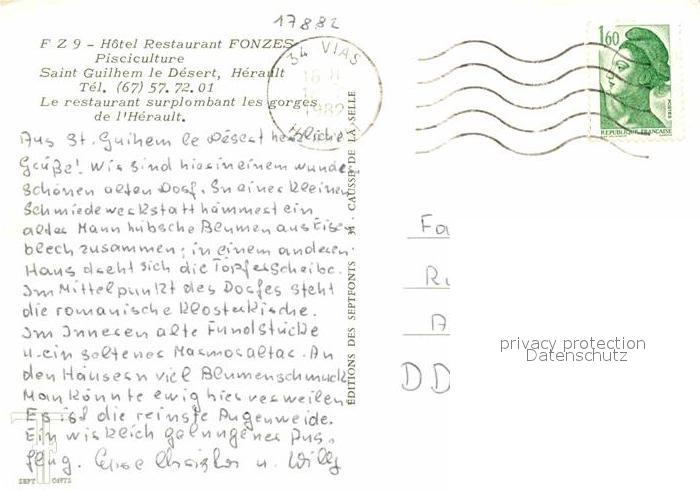 17882
F Z 9 - Hôtel Restaurant FONZES
Pisciculture
Saint Guilhem le Désert, Hérault
Tél. (67) 57.72.01
Le restaurant surplombant les gorges
de l'Hérault.
34 VIAS
1982
1,60
POSTES
REPUBLIQUE FRANÇAISE
Aus St. Guihem le Désert herzliche
Grüße! Wir sind hier in einem wunder
schönen alten Dorf. In einer kleinen
Schmiedewerkstatt hämmert ein
alter Mann hübsche Blumen aus Eisen
blech zusammen; in einem anderen
Haus dreht sich die Töpferscheibe.
Im Mittelpunkt des Dorfes steht
die romanische Klosterkirche.
Im Inneren alte Fundstücke
u. ein seltener Marmoraltar. An
den Häusern viel Blumenschmuck
Man könnte ewig hier verweilen.
Es ist die reinste Augenweide.
Ein wirklich gelungener Aus-
flug. u. Willy
EDITIONS DES SEPTFONTS 34 - CAUSSE DE LA SELLE
SEPT FONTS
Fa
R
A
DD
privacy protection
Datenschutz